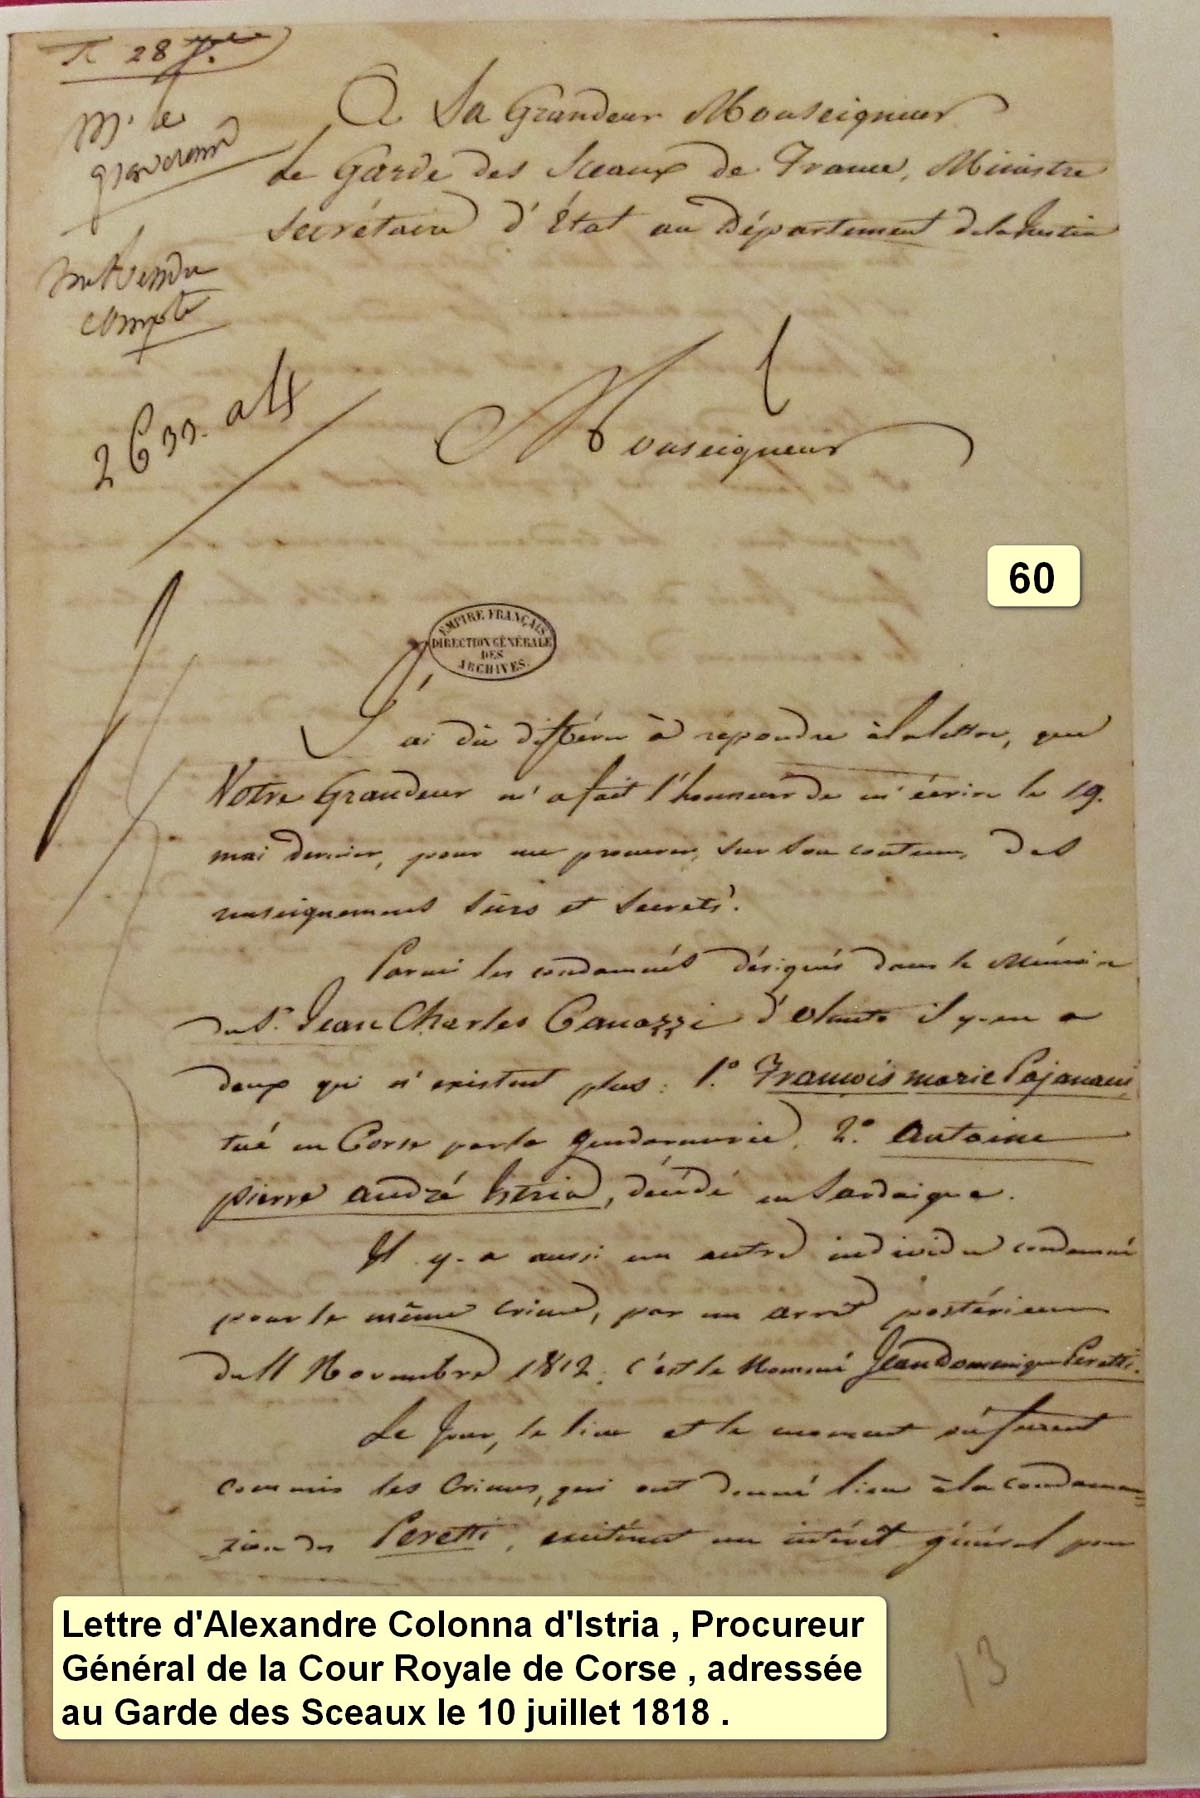 R 28
Mr le
me rendre
compte
2633. a 4
A Sa Grandeur Monseigneur
Le Garde des Sceaux de France, Ministre
Secrétaire d'État au Département de la Justice
Monseigneur
60
EMPIRE FRANÇAIS
DIRECTION GÉNÉRALE
DES
ARCHIVES.
J'ai dû différer à répondre à la lettre, que
Votre Grandeur m'a fait l'honneur de m'écrire le 19.
mai dernier, pour me procurer, sur son contenu, des
renseignemens sûrs et secrets.
Parmi les condamnés désignés dans le Mémoire
du Sr. Jean Charles Canazzi d'Olmeto il y-en a
deux qui n'existent plus: 1.º François marie Pajanacci,
tué en Corse par la gendarmerie, 2.º Antoine
pierre andré Istria, décédé en Sardaigne.
Il y-a aussi un autre individu condamné
pour le même crime, par un arrêt postérieur
du 11 Novembre 1812; c'est le Nommé Jean Dominique Peretti.
Le Jour, le lieu et le moment où furent
commis les Crimes, qui ont donné lieu à la condamna=
=tion des Peretti, excitèrent un intérêt général pour
13
Lettre d'Alexandre Colonna d'Istria , Procureur
Général de la Cour Royale de Corse , adressée
au Garde des Sceaux le 10 juillet 1818 .